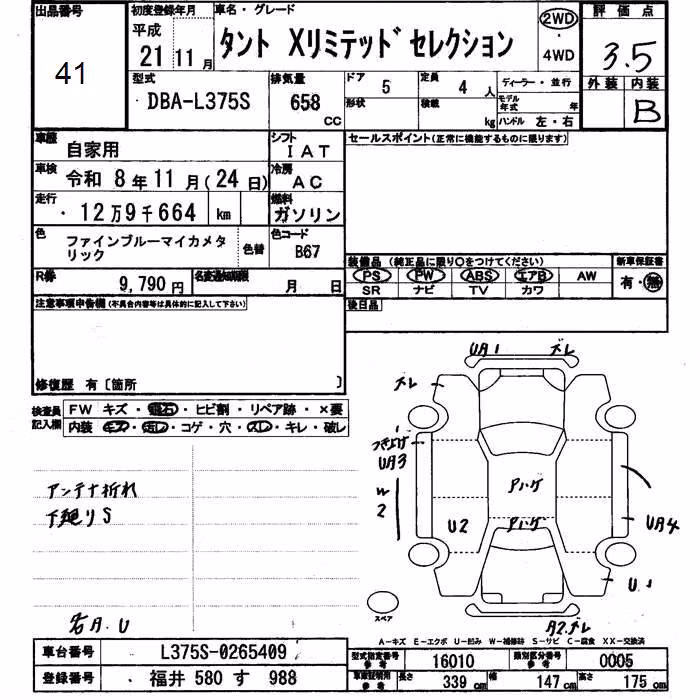 出品番号
41
初度登録年月
平成
21 11 月
車名・グレード
タント Xリミテッド セレクション
2WD
・
4WD
評価点
3.5
外装 内装
B
型式
DBA-L375S
排気量
658
CC
ドア 5
形状
定員 4 人
積載 kg
ディーラー・並行
モデル年式 年
ハンドル 左・右
車歴
自家用
シフト
IAT
車検
令和 8年 11月 (24日)
冷房
AC
走行
・12万9千664 km
燃料
ガソリン
色
ファインブルーマイカメタ
リック
色替
色コード
B67
R券
9,790 円
名変通知期限
月 日
セールスポイント(正常に機能するものに限ります)
装備品 (純正品に限り○をつけてください)
PS PW ABS エアB AW
SR ナビ TV カワ
新車保証書
有・無
後日品
注意事項申告欄(不具合内容等は具体的に記入して下さい)
修復歴 有〔箇所 〕
検査員
記入欄
FW キズ・飛石・ヒビ割・リペア跡・×要
内装 キズ・汚レ・コゲ・穴・スレ・キレ・破レ
アンテナ折れ
下廻りS
UA1 ズレ
ズレ
UA3
W
2
U2
UA4
U1
A2.ズレ
スペア
A-キズ E-エクボ U-凹み W-補修跡 S-サビ C-腐食 XX-交換済
車台番号
L375S-0265409
登録番号
福井 580 す 988
型式指定番号
参考
16010
類別区分番号
参考
0005
車庫証明用
参考
長さ 339 cm
幅 147 cm
高さ 175 cm